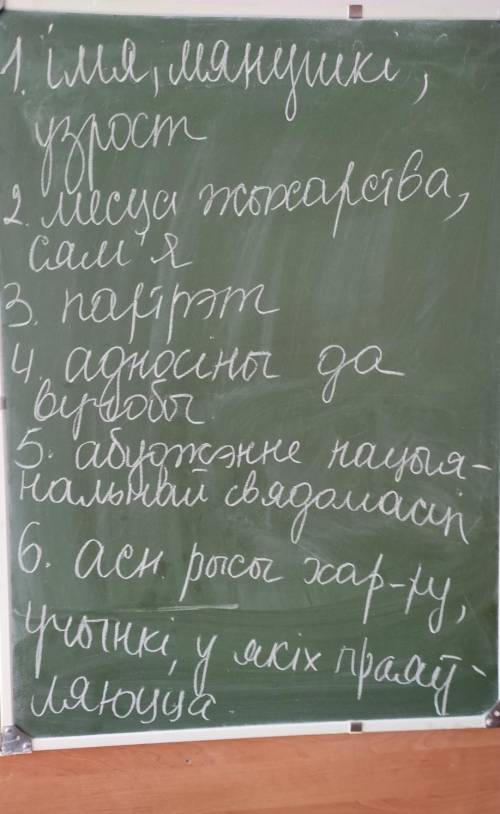 1. імя, мянушкі,
узрост
2. месца жыхарства,
сям'я
3. партрэт
4. адносіны да
вучобы
5. абуджэнне нацыя-
нальнай свядомасці
6. асн. рысы хар-ру,
учынкі, у якіх праяў-
ляюцца.